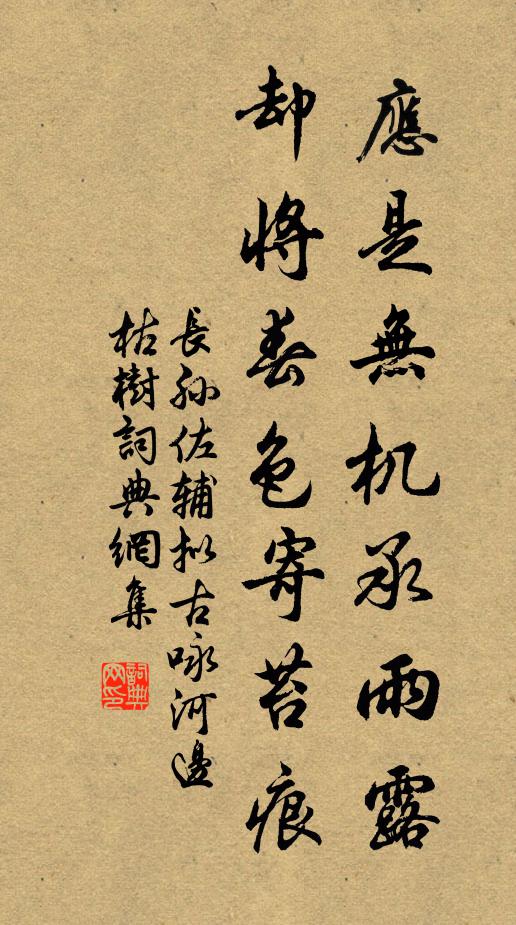 應是無机承雨露
却將春色寄苔痕
長孫佐輔拟古咏河邊
枯樹詞典網集
詞典
网印